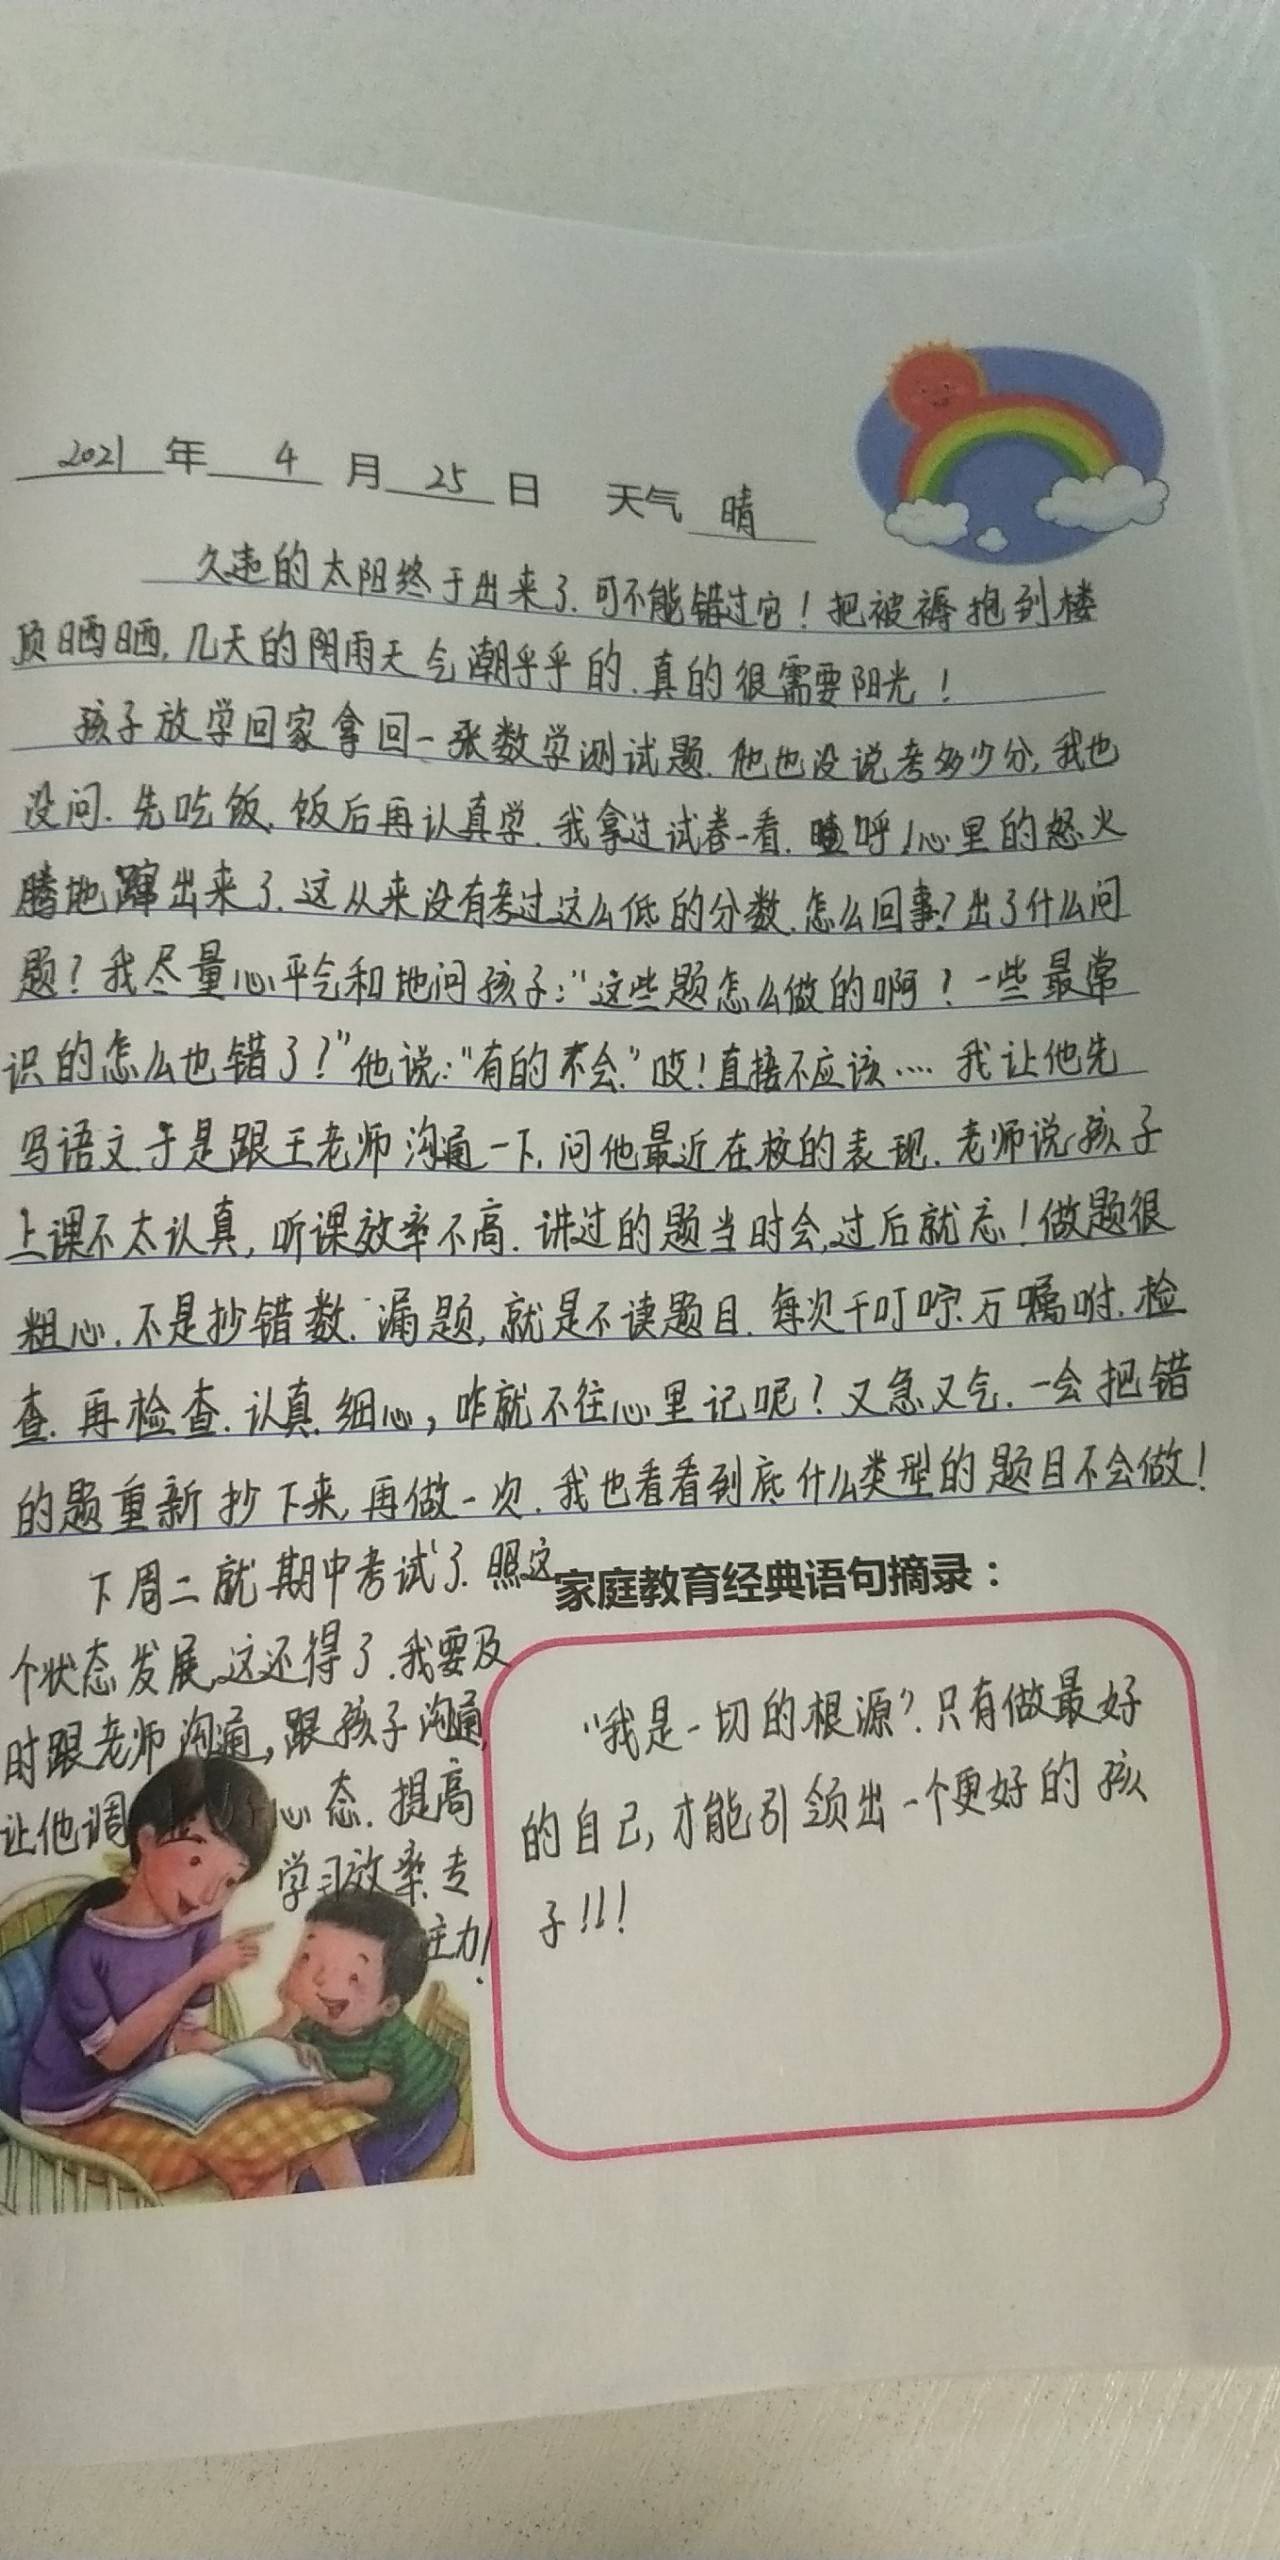 2021 年 4 月 25 日 天气 晴
久违的太阳终于出来了.可不能错过它！把被褥抱到楼
顶晒晒,几天的阴雨天气潮乎乎的.真的很需要阳光！
孩子放学回家拿回一张数学测试题.他也没说考多少分,我也
没问.先吃饭.饭后再认真学.我拿过试卷一看.嚄呼!心里的怒火
腾地蹿出来了.这从来没有考过这么低的分数.怎么回事?出了什么问
题?我尽量心平气和地问孩子:“这些题怎么做的啊?一些最常
识的怎么也错了?”他说:“有的不会.”哎!直接不应该….我让他先
写语文.于是跟王老师沟通一下,问他最近在校的表现.老师说孩子
上课不太认真,听课效率不高.讲过的题当时会,过后就忘!做题很
粗心.不是抄错数.漏题,就是不读题目.每次千叮咛.万嘱咐.检
查.再检查.认真.细心,咋就不往心里记呢?又急又气.一会把错
的题重新抄下来,再做一次.我也看看到底什么类型的题目不会做!
下周二就期中考试了.照这
个状态发展,这还得了.我要及
时跟老师沟通,跟孩子沟通,
让他调 好心态.提高
学习效率.专
注力!
家庭教育经典语句摘录：
“我是一切的根源”.只有做最好
的自己,才能引领出一个更好的孩
子!!!